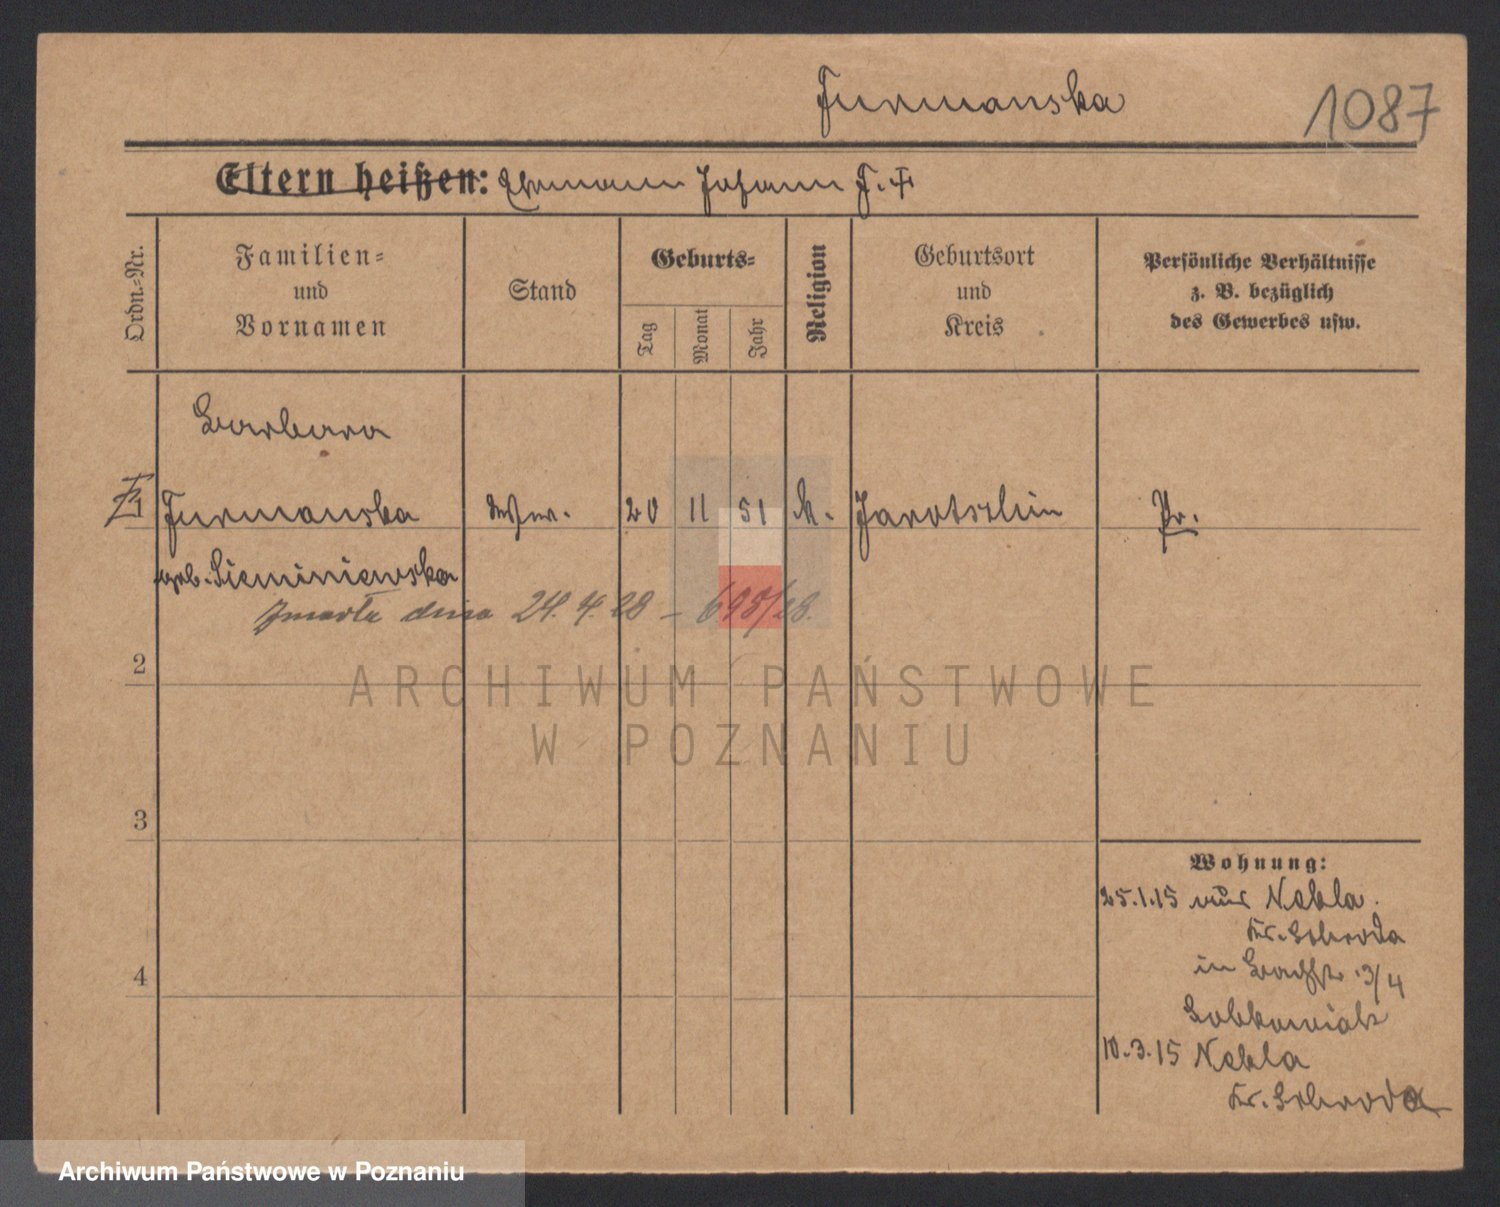 Furmanska
1087
Eltern heißen: Ehemann Johann F. †
Ordn.-Nr.
Familien-
und
Vornamen
Stand
Geburts-
Tag
Monat
Jahr
Religion
Geburtsort
und
Kreis
Persönliche Verhältnisse
z. B. bezüglich
des Gewerbes usw.
Barbara
1 Furmanska 20 11 51 k. Jarotschin Pr.
geb. Sieminiewska
Zmarła dnia 24. 4. 28 – 695/28.
2
ARCHIWUM PAŃSTWOWE
W POZNANIU
3
4
Wohnung:
25.1.15 aus Nekla.
Kr. Schroda
in Bachstr. 3/4
10.3.15 Nekla
Kr. Schroda
Archiwum Państwowe w Poznaniu